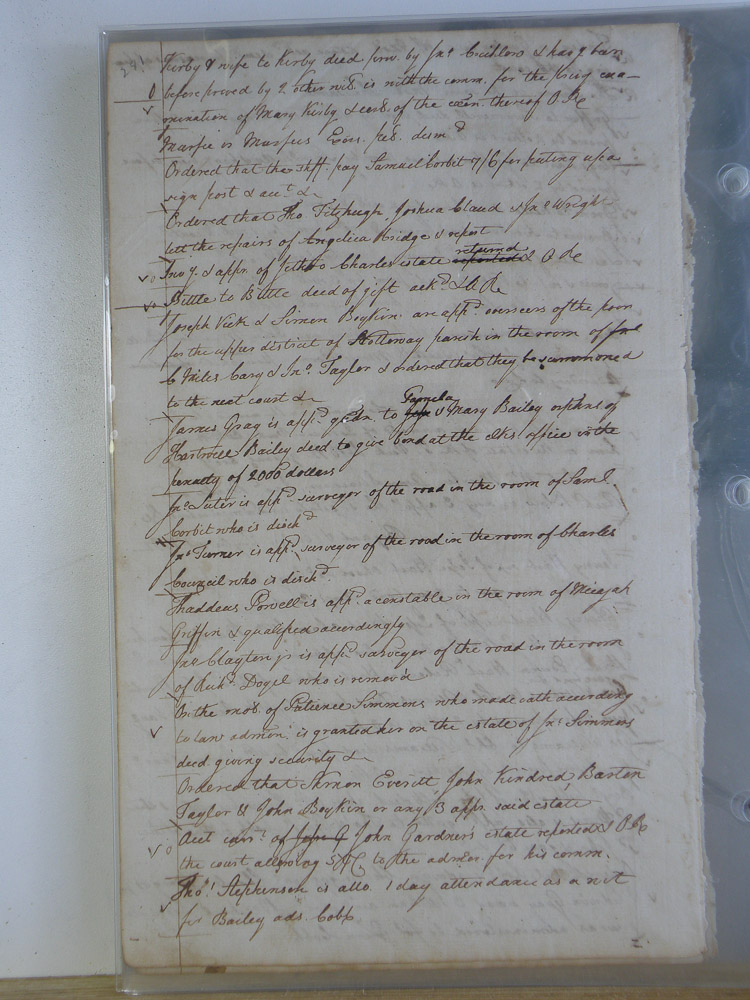 Kirby & wife to Kirby deed prov. by Jnº & havg been
before proved by 2 other wits. is with the comm. for the privy exa-
mination of Mary Kirby & certs. of the exen. thereof O Re
vs Exrs. dismd
Ordered that the shff. pay Samuel Corbit 7/6 for putting up a
sign post & acct &
Ordered that Tho Fitzhugh, Joshua Claud & Jnº Wright
lett the repairs of Angelica Bridge & report
Invy. & appr. of Charles estate reported returned & O Re
Bittle to Bittle deed of gift ackd. & O. Re
Joseph Vick & Simon Boykin are appd. overseers of the poor
for the upper district of Nottoway parish in the room of
Miles Cary & Jnº Taylor & ordered that they be summoned
to the next court &
James Gray is appd. gudn. to Pamela & Mary Bailey orphns of
Hartwell Bailey decd to give bond at the clks office in the
penalty of 2000 dollars
Jnº Suter is appd surveyor of the road in the room of Saml.
Corbit who is dischd
Jnº Turner is appd surveyor of the road in the room of Charles
Council who is dischd.
Thaddeus Powell is appd. a constable in the room of Micajah
Griffin & qualified accordingly
Jnº Clayton jr is appd. surveyor of the road in the room
of Richd. Doyel who is remov'd
On the mot. of Patience Simmons who made oath according
to law admon. is granted her on the estate of Jnº Simmons
decd giving security &
Ordered that Everitt John Kindred Barton
Taylor & John Boykin or any 3 appr. said estate
Acct currt. of Jesse G John Gardners estate reported & O. Re
the court allowing 5 to the admor for his comm.
Thos. Stephenson is allo. 1 day attendance as a wit
for Bailey ads. Cobb
2